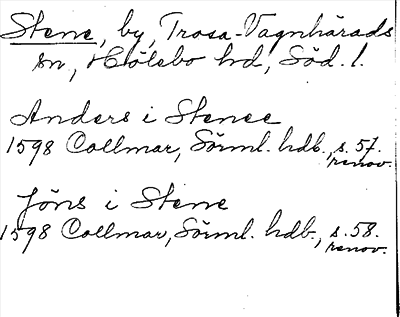 Stene, by, Trosa-Vagnhärads
sn, Hölebo hd, Söd. l.
Anders i Stenee
1598 Collmar, Sörml. hdb., s. 57.
renov.
Jöns i Stene
1598 Collmar, Sörml. hdb., s. 58.
renov.